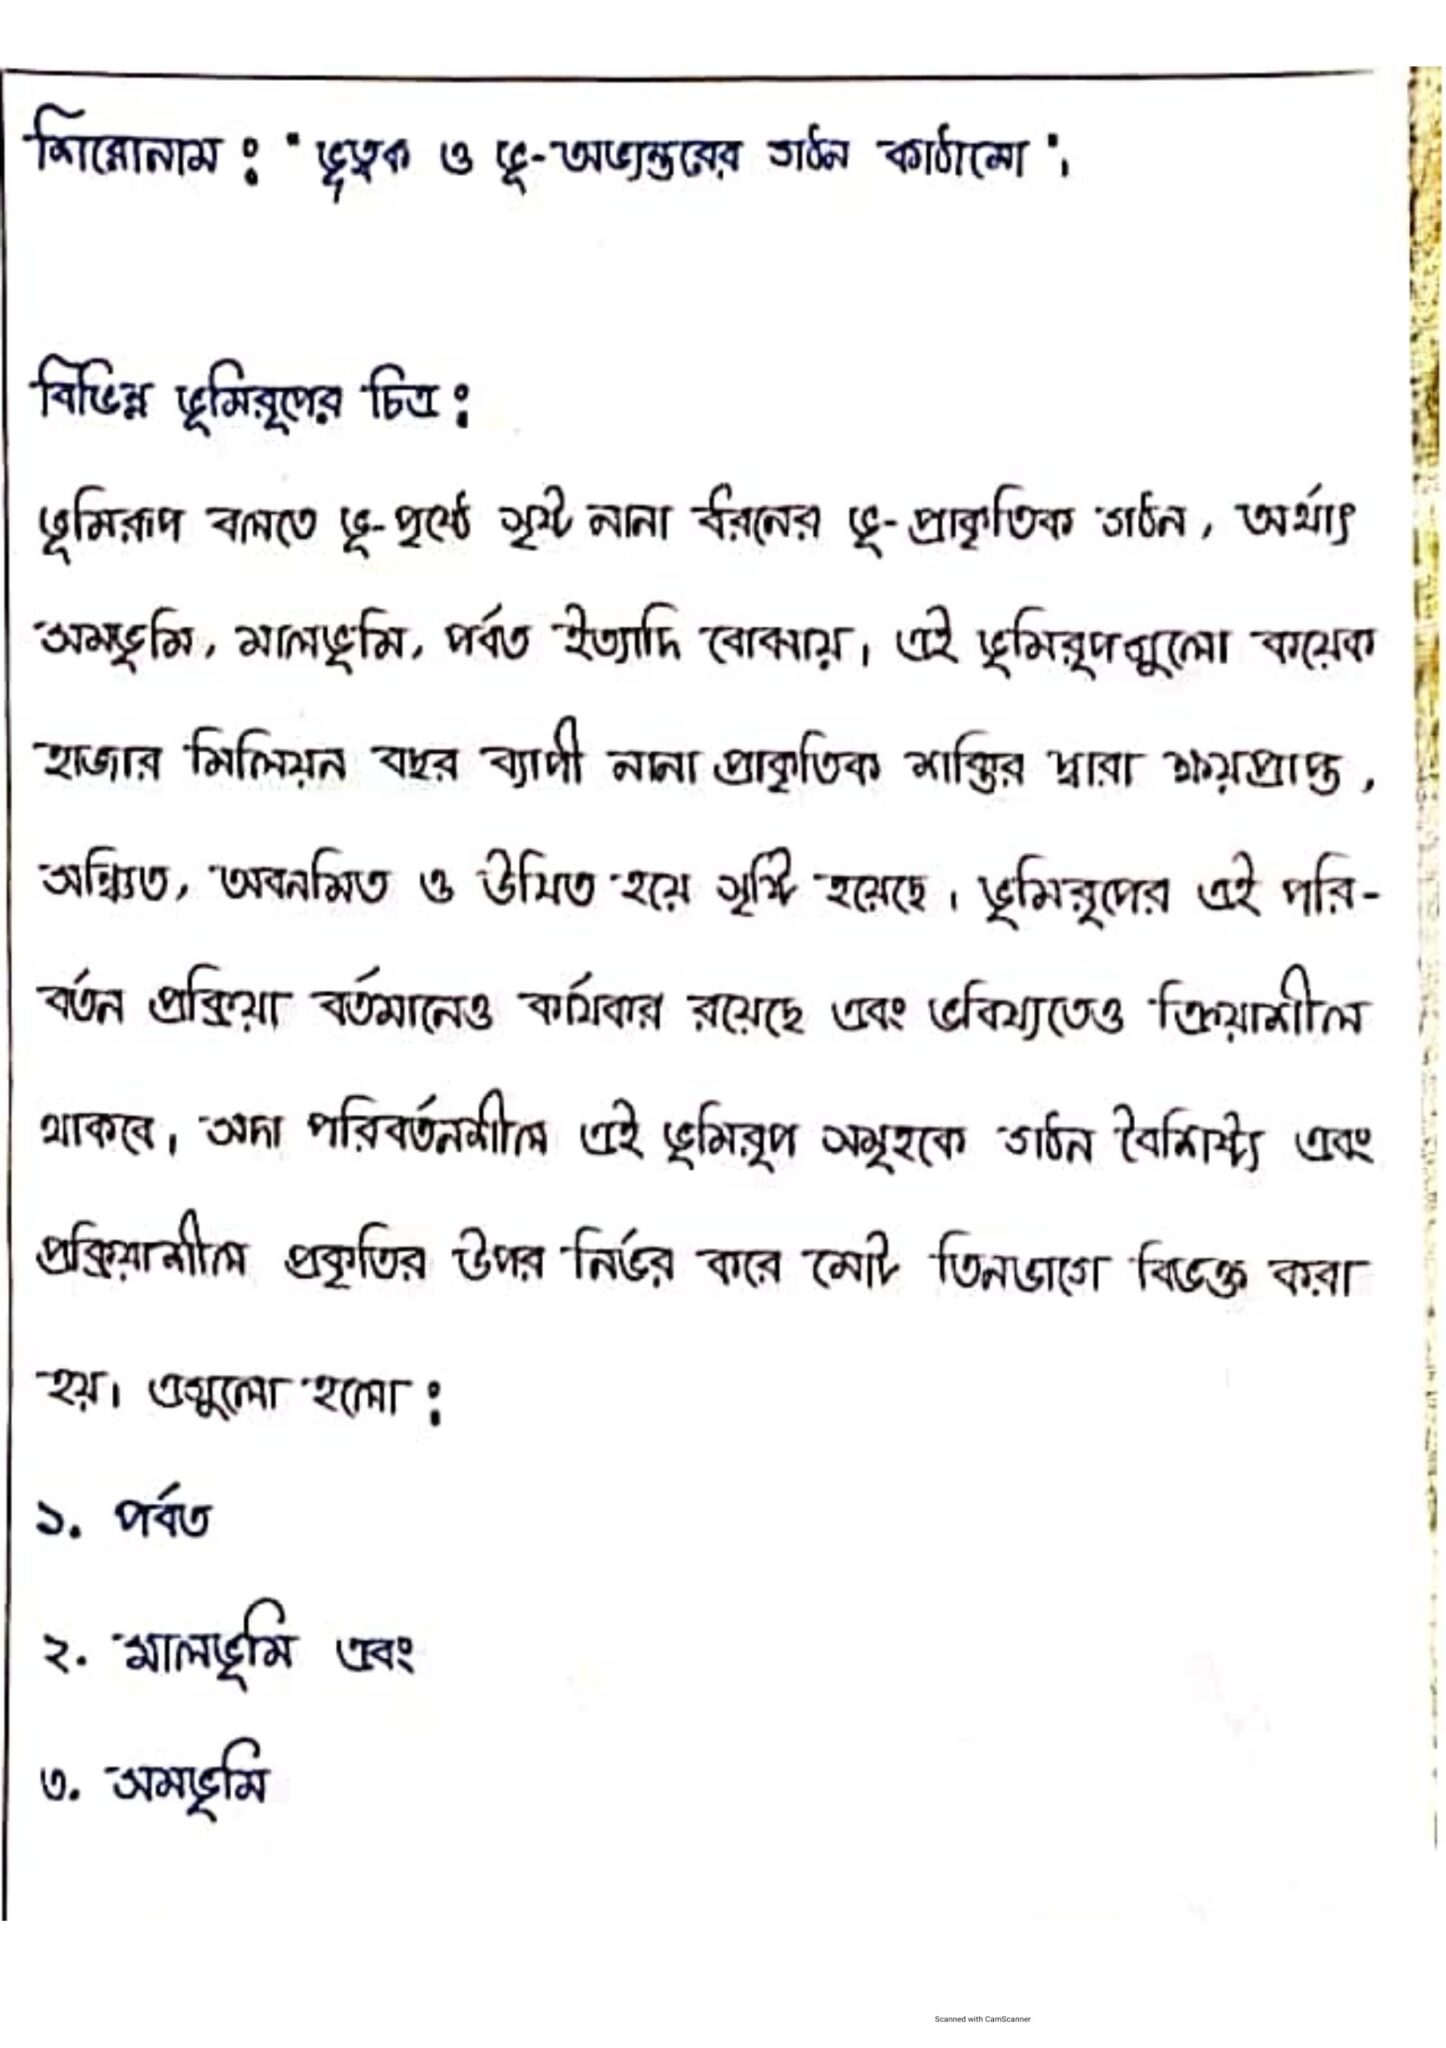 শিরোনাম : "ভূত্বক ও ভূ-অভ্যন্তরের গঠন কাঠামো"।
বিভিন্ন ভূমিরূপের চিত্র :
ভূমিরূপ বলতে ভূ-পৃষ্ঠে সৃষ্ট নানা ধরনের ভূ-প্রাকৃতিক গঠন, অর্থাৎ
সমভূমি, মালভূমি, পর্বত ইত্যাদি বোঝায়। এই ভূমিরূপগুলো কয়েক
হাজার মিলিয়ন বছর ব্যাপী নানা প্রাকৃতিক শক্তির দ্বারা ক্ষয়প্রাপ্ত,
সঞ্চিত, অবনমিত ও উত্থিত হয়ে সৃষ্টি হয়েছে। ভূমিরূপের এই পরি-
বর্তন প্রক্রিয়া বর্তমানেও কার্যকর রয়েছে এবং ভবিষ্যতেও ক্রিয়াশীল
থাকবে। সদা পরিবর্তনশীল এই ভূমিরূপ সমূহকে গঠন বৈশিষ্ট্য এবং
প্রক্রিয়াশীল প্রকৃতির উপর নির্ভর করে মোট তিনভাগে বিভক্ত করা
হয়। এগুলো হলো :
১. পর্বত
২. মালভূমি এবং
৩. সমভূমি
Scanned with CamScanner